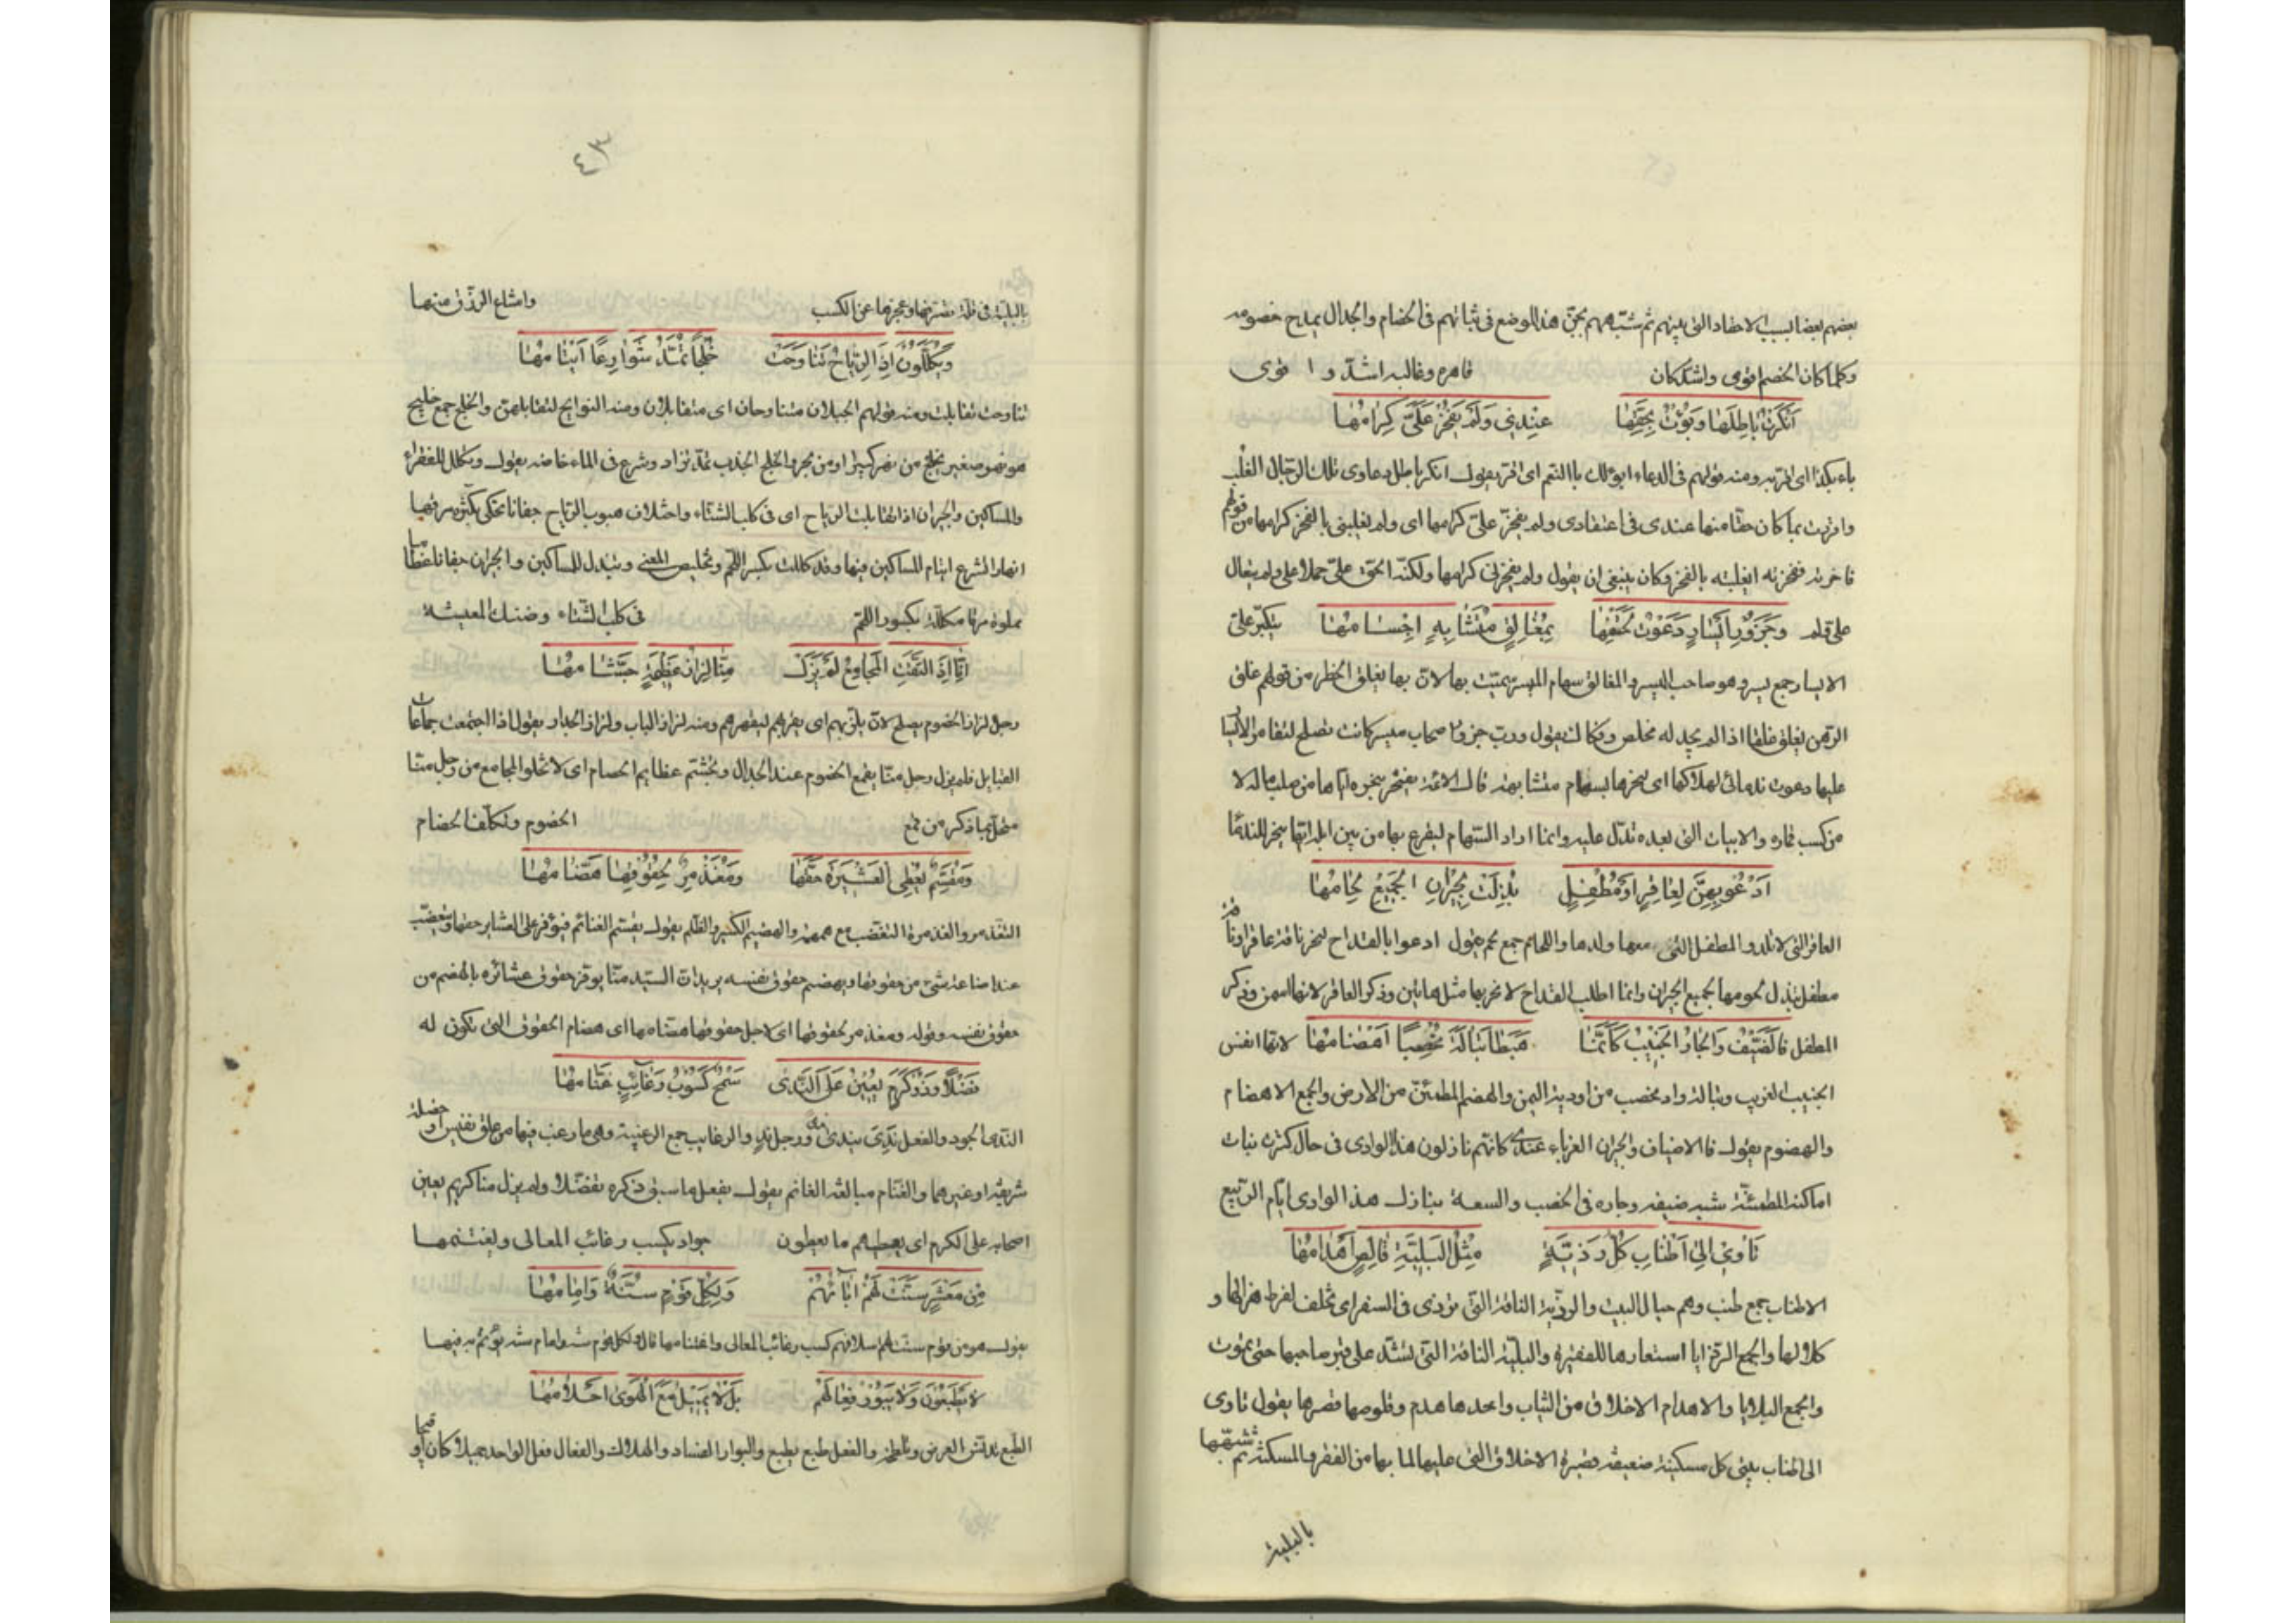 بعضهم بعضا بسبب الاحقاد التى بينهم ثم شبههم بجن هذا الموضع فى ثباتهم فى الخصام والجدال يمدح خصومه
وكلما كان الخصم اقوى واشد كان قاهره وغالبه اشد و ا قوى
اَنْكَرْتُ بَاطِلَهَا وَبُؤْتُ بِحَقِّهَا عِنْدِي وَلَمْ يَفْخَرْ عَلَىَّ كِرَامُهَا
باء بكذا اى اقر به ومنه قولهم فى الدعاء ابوء لك بالنعم اى اقر يقول انكر باطل دعاوى تلك الرجال الغلب
واقررت بما كان حقا منها عندى فى اعتقادى ولم يفخر على كرامها اى ولم يغلبنى بالفخر كرامها من قولهم
فاخرته ففخرته اى غلبته بالفخر وكان ينبغى ان يقول ولم يفخرنى كرامها ولكنه الحق على حملا على ولم يتعال
على ولم يتكبر على وَجَزُورِ اَيْسَارٍ دَعَوْتُ لِحَتْفِهَا بِمَغَالِقٍ مُتَشَابِهٍ اَجْسَامُهَا
الايسار جمع يسر وهو صاحب الميسر والمغالق سهام الميسر سميت بها لان بها يغلق الخطر من قولهم غلق
الرهن يغلق غلقا اذا لم يجد له مخلص وفكاك يقول ورب جزور اصحاب ميسر كانت تصلح لتقامر الايسار
عليها دعوت ندمائى لهلاكها اى لنحرها بسهام متشابهة قال الائمة يفتخر بنحره اياها من صلب ماله لا
من كسب قماره والابيات التى بعده تدل عليه وانما اراد السهام ليقرع بها من بين ابله ايها ينحر للندما
اَدْعُو بِهِنَّ لِعَاقِرٍ اَوْ مُطْفِلٍ بُذِلَتْ لِجِيْرَانِ الْجَمِيْعِ لِحَامُهَا
العاقر التى لا تلد والمطفل التى معها ولدها واللحام جمع لحم يقول ادعوا بالقداح لنحر ناقة عاقر او ناقة
مطفل تبذل لحومها لجميع الجيران وانما اطلب القداح لانحر بها مثل هاتين وذكر العاقر لانها اسمن وذكر
المطفل لانها انفس فَالضَّيْفُ وَالْجَارُ الْجَنِيْبُ كَاَنَّمَا هَبَطَا تَبَالَةَ مُخْصِبًا اَهْضَامُهَا
الجنيب الغريب وتبالة واد مخصب من اودية اليمن والهضم المطمئن من الارض والجمع الاهضام
والهضوم يقول فالاضياف والجيران الغرباء عندى كانهم نازلون هذا الوادى فى حال كثرة نبات
اماكنه المطمئنة شبه ضيفه وجاره فى الخصب والسعة بنازل هذا الوادى ايام الربيع
تَاْوِيْ اِلَى اَطْنَابِ كُلُّ رَذِيَّةٍ مِثْلُ الْبَلِيَّةِ قَالِصٍ اَهْدَامُهَا
الاطناب جمع طنب وهم حبال البيت والرذية الناقة التى ترذى فى السفر اى تخلف لفرط هزالها و
كلالها والجمع الرذايا استعارها للفقيرة والبلية الناقة التى تشد على قبر صاحبها حتى يموت
والجمع البلايا والاهدام الاخلاق من الثياب واحدها هدم وقلوصها قصرها يقول تاوى
الى اطناب بيتى كل مسكينة ضعيفة قصيرة الاخلاق التى عليها لما بها من الفقر والمسكنة ثم شبهها
بالبلية
٤٣
بالبلية فى قلة تصرفها وعجزها عن الكسب وامتناع الرزق منها
وَيُكَلِّلُوْنَ اِذَا الرِّيَاحُ تَنَاوَحَتْ خُلُجًا تُمَدُّ شَوَارِعًا اَيْتَامُهَا
تناوحت تقابلت ومنه قولهم الجبلان متناوحان اى متقابلان ومنه النوايح لتقابلهن والخلج جمع خليج
هو نهر صغير يخلج من نهر كبير او من بحر والخلج الجذب تمد تزاد وشرع فى الماء خاضه يقول ونكلل للفقراء
والمساكين والجيران اذا تقابلت الرياح اى فى كلب الشتاء واختلاف هبوب الرياح جفانا تحكى بكثرة مرقها
انهارا تشرع ايتام المساكين فيها وقد كللت بكسر اللحم وتخليص المعنى ونبذل للمساكين والجيران جفانا عظاما
مملوة مرقا مكللة بكسور اللحم فى كلب الشتاء وضنك المعيشة
اِنَّا اِذَا الْتَقَتِ الْمَجَامِعُ لَمْ يَزَلْ مِنَّا لِزَازُ عَظِيْمَةٍ جَشَّامُهَا
رجل لزاز الخصوم يصلح لان يلز بهم اى يقرن بهم ليقهرهم ومنه لزاز الباب ولزاز الجدار يقول اذا اجتمعت جماعات
القبايل فلم يزل رجل منا يقمع الخصوم عند الجدال ويتجشم عظايم الخصام اى لا تخلو المجامع من رجل منا
متحل بما ذكر من قمع الخصوم وتكلف الخصام
وَمُقَسِّمٌ يُعْطِى الْعَشِيْرَةَ حَقَّهَا وَمُغَذْمِرٌ لِحُقُوْقِهَا هَضَّامُهَا
التغذمر والغذمرة التغضب مع همهمة والهضم الكسر والظلم يقول يقسم الغنائم فيوفر على العشاير حقها ويتغضب
عند اضاعة شىء من حقوقها ويهضم حقوق نفسه يريد ان السيد منا يوفر حقوق عشائره بالهضم من
حقوق نفسه وقوله ومغذمر لحقوقها اى لاجل حقوقها هضامها اى هضام الحقوق التى تكون له
فَضْلًا وَذُوْ كَرَمٍ يُعِيْنُ عَلَى النَّدٰى سَمْحٌ كَسُوْبُ رَغَائِبٍ غَنَّامُهَا
الندى الجود والفعل ندى يندى ورجل ند والرغايب جمع الرغيبة وهى ما رغب فيها من علق نفيس او خصلة
شريفة او غيرهما والغنام مبالغة الغانم يقول يفعل ما سبق ذكره تفضلا ولم يزل منا كريم يعين
اصحابه على الكرم اى يعطيهم ما يعطون جواد يكسب رغائب المعالى ويغتنمها
مِنْ مَعْشَرٍ سَنَّتْ لَهُمْ اٰبَائُهُمْ وَلِكُلِّ قَوْمٍ سُنَّةٌ وَاِمَامُهَا
يقول هو من قوم سنت لهم اسلافهم كسب رغائب المعالى واغتنامها قال ولكل قوم سنة وامام سنة يؤتم به فيها
لَا يَطْبَعُوْنَ وَلَا يَبُوْرُ فَعَالُهُمْ بَلْ لَا يَمِيْلُ مَعَ الْهَوٰى اَحْلَامُهَا
الطبع تدنس العرض وتلطخه والفعل طبع يطبع والبوار الفساد والهلاك والفعال فعل الواحد جميلا كان او قبيحا